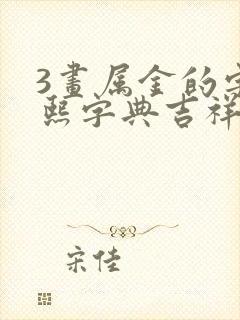 3畫属金的字
熙字典吉祥
宋佳